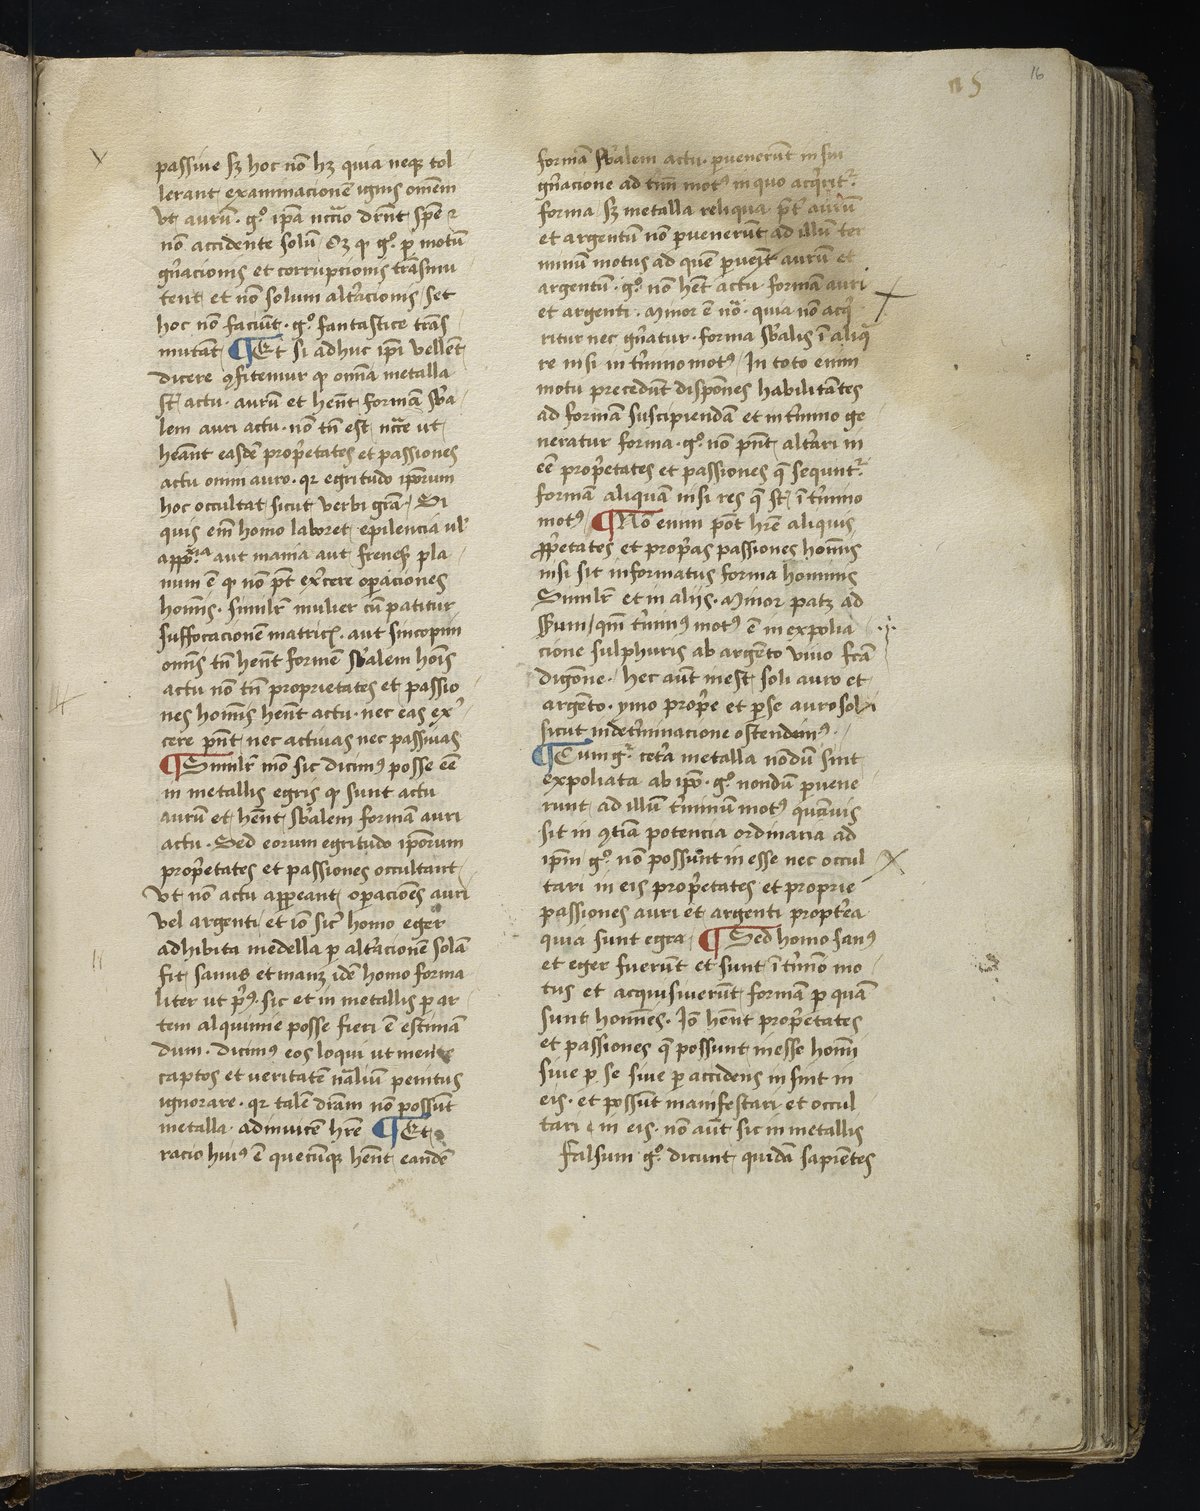 16
n 5
passiue sꝫ hoc nō hꝫ quia neqꝫ tol
lerant examinacionē ignis om̄em
vt aurū · gͦ ip̄a nccͣio drn̄t spē ⁊
nō accidente solū Oꝫ ꝙ gͦ ꝑ motū
gn̄acionis et corrupcionis trāsmu
tent et nō solum altͣcionis / set
hoc nō faciūt · gͦ fantastice trās
mutāt ¶ Et si adhuc ip̄i vellent
dicere ꝯfitemur ꝙ om̄ia metalla
st̄ actu · aurū et hēnt formā sb̄a
lem auri actu · nō tn̄ est nccͣe ut
heānt easdē prop̄etates et passiones
actu omni auro · qꝛ egritudo ip̄orum
hoc occultat sicut verbi grā · Si
quis em̄ homo laboret epilencia ul̓
appͦꝛͥᵃ aut mania aut frenesꝭ pla
num ē ꝙ nō pt̄ ex̓cere oꝑaciones
homīs · simil̓r mulier cū patitur
suffocacionē matricꝭ · aut sincopim
om̄s tn̄ hēnt formē sb̄alem hoīs
actu nō tn̄ proprietates et passio
nes homīs hēnt actu · nec eas ex̓
cere pn̄t nec actiuas nec passiuas
¶ Simil̓r mō sic dicimꝰ posse ēē
in metallis egris ꝙ sunt actu
aurū et hēnt sb̄alem formā auri
actu · Sed eorum egritudo ip̄orum
prop̄etates et passiones occultant
vt nō actu appeant oꝑacioēs auri
vel argenti et iō sic̓ homo eger
adhibita medella ꝑ altͣcionē solā
fit sanus et manꝫ idē homo forma
liter ut p̓ꝰ · sic et in metallis ꝑ ar
tem alquimie posse fieri ē estimā
dum · dicimꝰ eos loqui ut mente
captos et ueritatē nāliū penitus
ignorare · qꝛ talē dr̄iam nō possūt
metalla adinuicē hr̄e ¶ Et
racio huiꝰ ē quecūqꝫ hēnt eandē
formā sb̄alem actu · ꝑuenerūt in sui
gn̄acione ad tm̄ motꝰ in quo acq̓ritᷣ
forma / sꝫ metalla reliqua p̄t̓ aurū
et argentū nō ꝑuenerūt ad illū ter
minū motus ad quē ꝑueīt aurū et
argentū · gͦ nō hēt actu formā auri
et argenti · Minor ē nōͣ · quia nō acq̓
ritur nec gn̄atur · forma sb̄alis ī aliqͣ
re nisi in t̓mino motꝰ / In toto enim
motu precedūt disp̄ones habilitātes
ad formā suscipiendā et in t̓mino ge
neratur forma · gͦ nō pn̄t alt̓ari in
ēē prop̄etates et passiones q̄ sequntᷣ
formā aliquā nisi res q̄ st̄ ī t̓mino
motꝰ ¶ Nō enim pōt hr̄e aliquis
ꝓp̄etates et prop̄as passiones homīs
nisi sit informatus forma hominis
Simil̓r et in aliis · Minor patꝫ ad
sēsum / qm̄ t̓minꝰ motꝰ ē in expolia
cione sulphuris ab argēto viuo fc̄ā
digōne · hec aūt inest soli auro et
argēto · ymo prop̄e et ꝑ se auro soli
sicut indet̓minacione ostendemꝰ ·
¶ Cum gͦ cet̓a metalla nōdū sint
expoliata ab ip̄o · gͦ nondū ꝑuene
runt ad illū t̓minū motꝰ quāuis
sit in ꝯtiām potencia ordinaria ad
ip̄m gͦ nō possunt in esse nec occul
tari in eis prop̄etates et proprie
passiones auri et argenti propt̓ea
quia sunt egra ¶ Sed homo sanꝰ
et eger fuerūt et sunt ī t̓mīo mo
tus et acquisiuerūt formā ꝑ quā
sunt homīes · Iō hēnt prop̄etates
et passiones q̄ possunt inesse homī
siue ꝑ se siue ꝑ accidens in sint in
eis · et possūt manifestari et occul
tari in eis · nō aūt sic in metallis
falsum gͦ dicunt quidā sapiētes